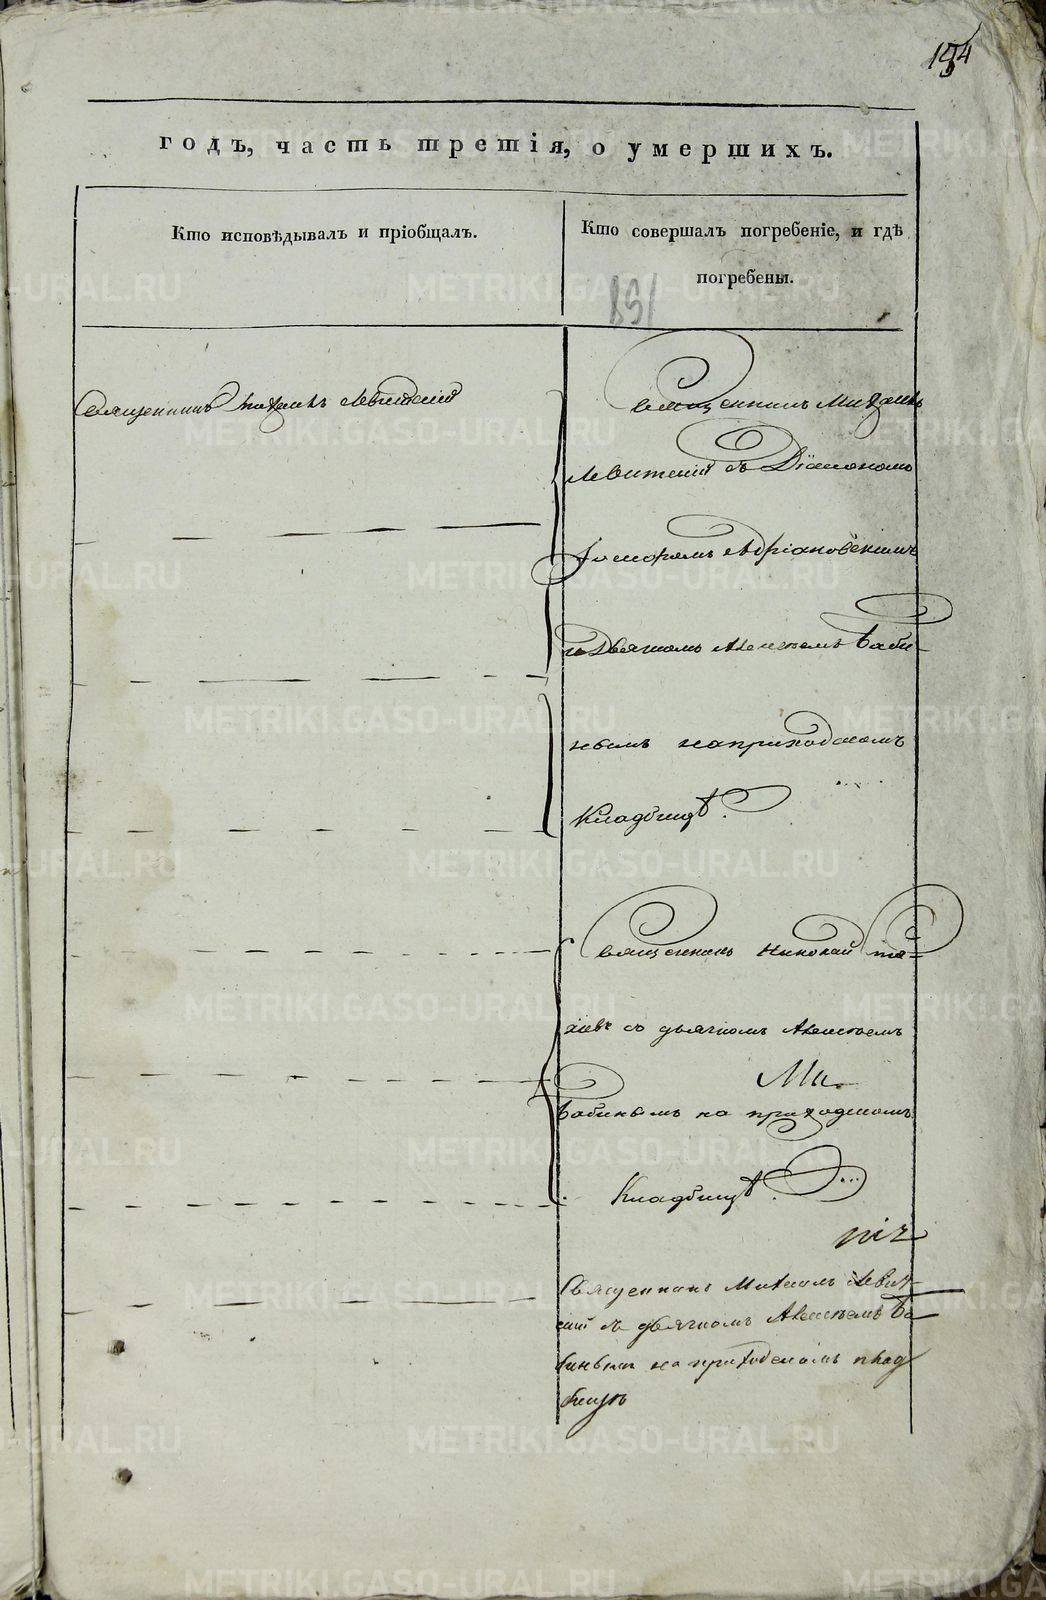 194
годъ, часть третія, о умершихъ.
Кто исповѣдывалъ и пріобщалъ.
Кто совершалъ погребеніе, и гдѣ
погребены.
151
Священникъ Михаилъ Левитскій
Священникъ Михаилъ
Левитскій съ Діакономъ
Адріановскимъ
и Дьячкомъ Алексѣемъ Баби-
нымъ на приходскомъ
Кладбищѣ.
Священникъ Николай
съ дьячкомъ Алексѣемъ
Ми
Бабинымъ на приходскомъ
Кладбищѣ.
Священникъ Михаилъ Левит-
скій съ дьячкомъ Алексѣемъ Ба
бинымъ на приходскомъ клад
бищѣ
METRIKI.GASO-URAL.RU